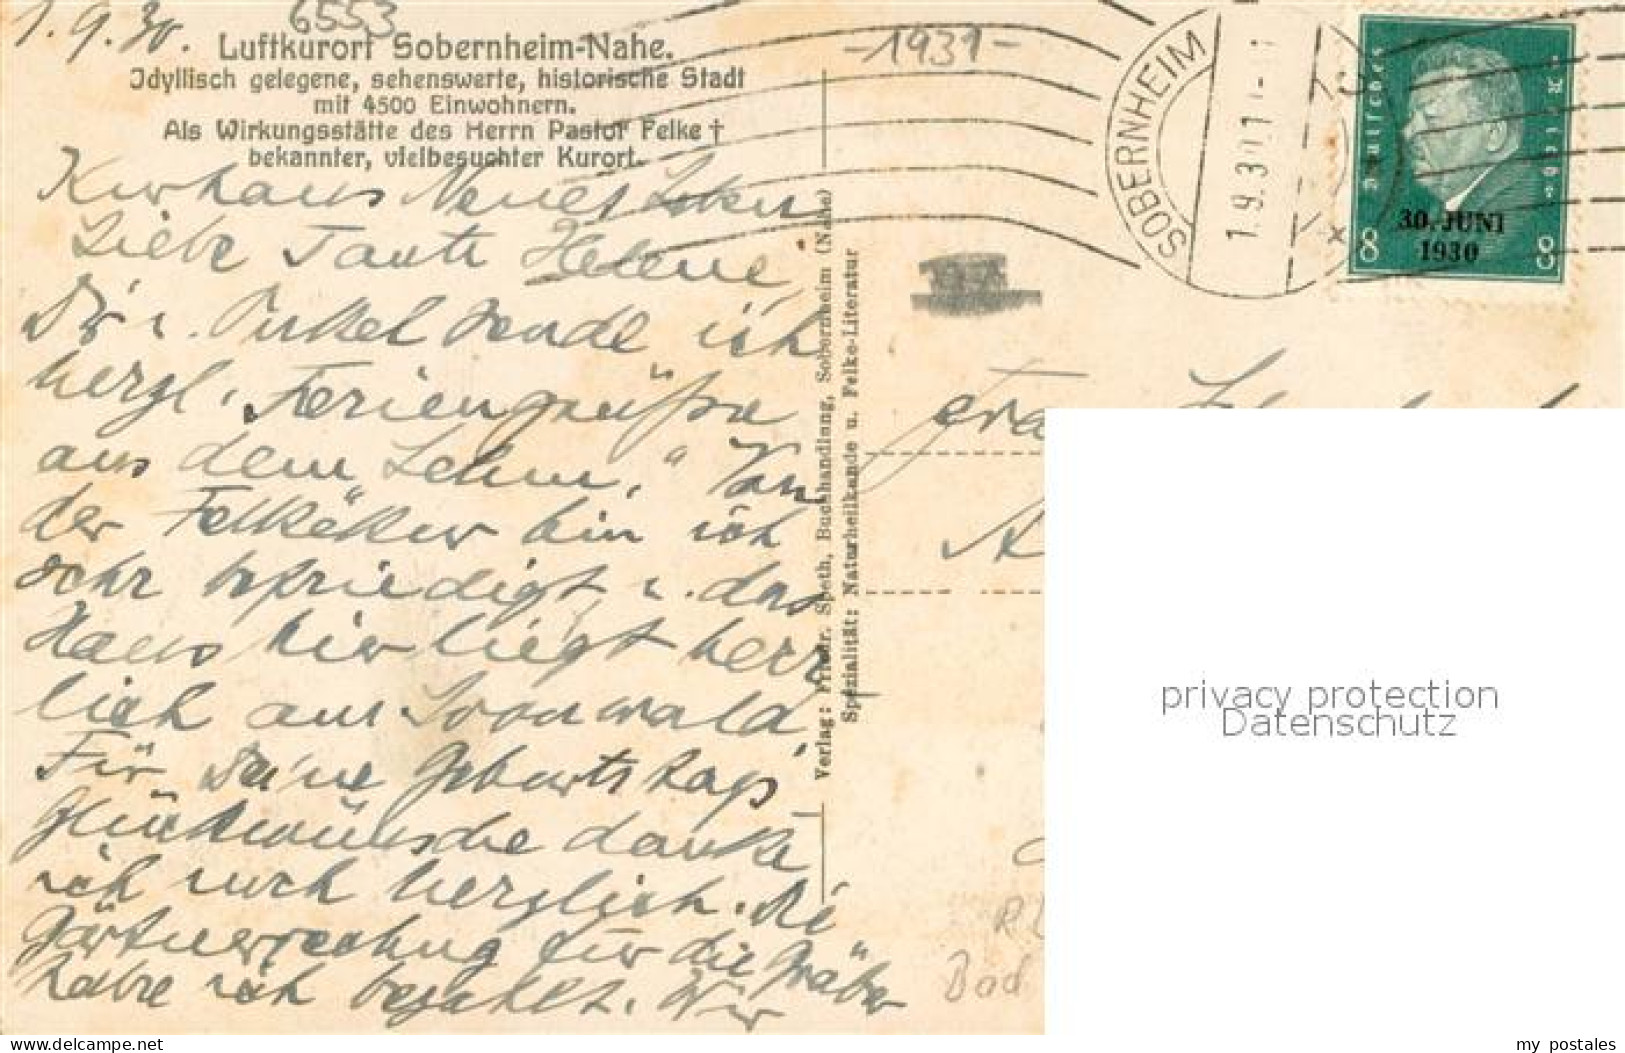 1.9.30.
6553
Luftkurort Sobernheim-Nahe.
Jdyllisch gelegene, sehenswerte, historische Stadt
mit 4500 Einwohnern.
Als Wirkungsstätte des Herrn Pastor Felke †
bekannter, vielbesuchter Kurort.
-1931-
SOBERNHEIM
1.9.30
Deutsches Reich
30. JUNI
1930
8 8
Kurhaus Neues Leben
Liebe Tante Helene
Dir u. Onkel sende ich
herzl. „Feriengrüße
aus dem Lehm.“ Von
der Felkekur bin ich
sehr befriedigt u. das
Haus hier liegt herr
lich am Soonwald.
Für Deine Geburtstags
glückwünsche danke
ich noch herzlich. Die
Gärtnerrechnung für die Gräber
habe ich bezahlt. Wir
Verlag: Friedr. Speth, Buchhandlung, Sobernheim (Nahe)
Spezialität: Naturheilkunde u. Felke-Literatur
Bad
privacy protection
Datenschutz
hanyibar.de
my_postales